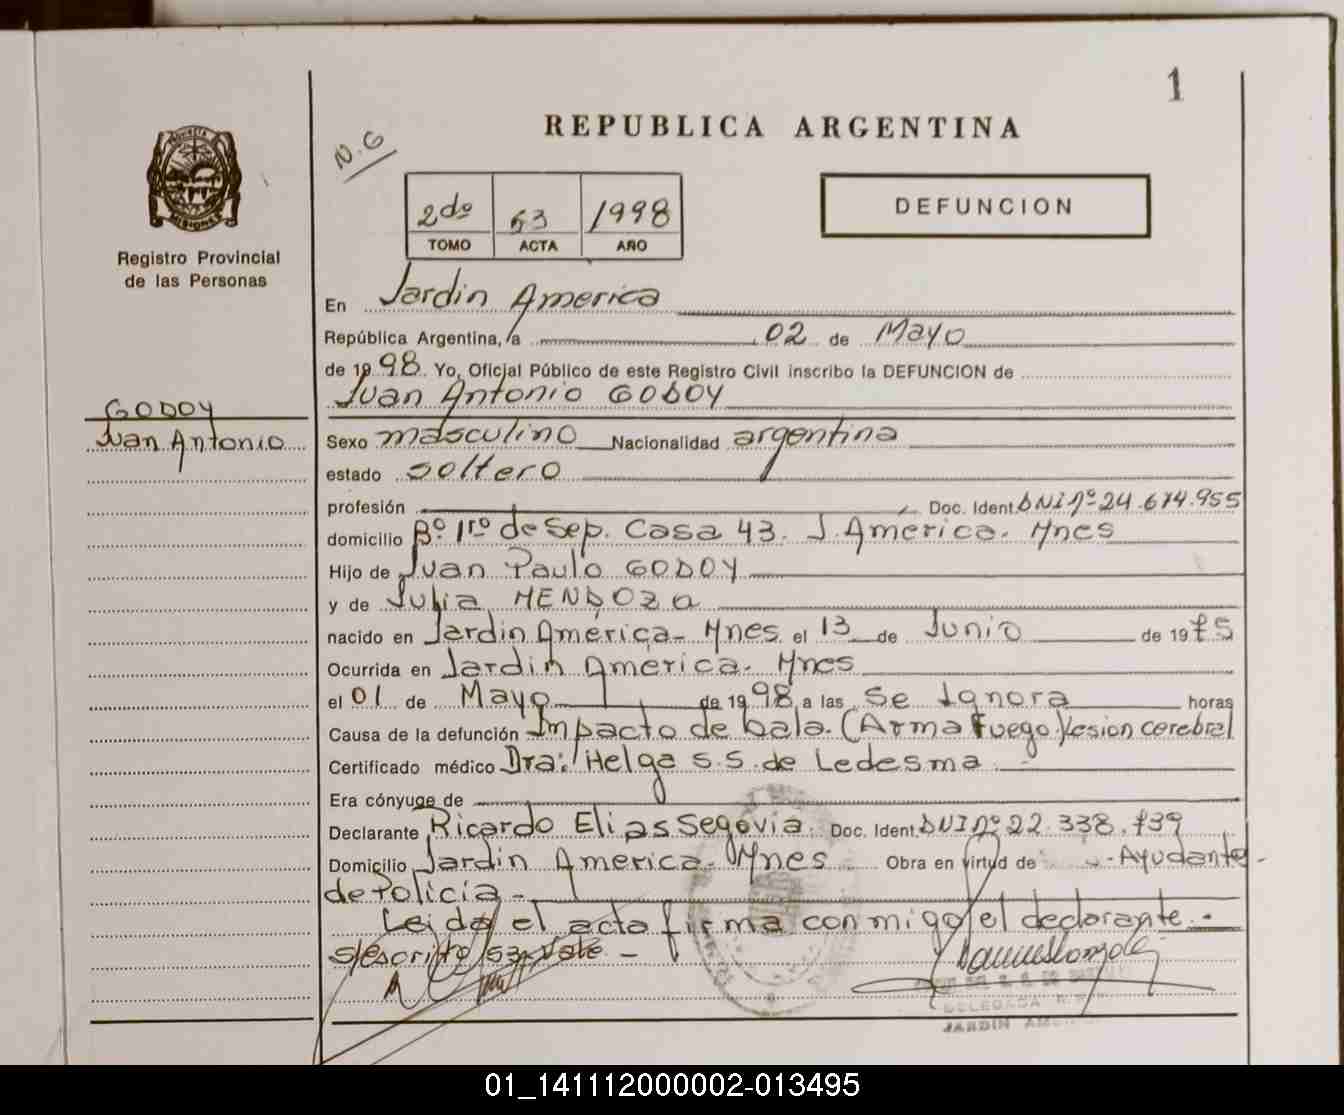 1
REPUBLICA ARGENTINA
N.G
2do 53 1998
TOMO ACTA AÑO
DEFUNCION
MISIONES
Registro Provincial
de las Personas
En Jardin America
República Argentina, a 02 de Mayo
de 1998. Yo, Oficial Público de este Registro Civil inscribo la DEFUNCION de
Juan Antonio GODOY
GODOY
Juan Antonio
Sexo masculino Nacionalidad argentina
estado soltero
profesión Doc. Ident. DNI nº 24.674.955
domicilio Bº 1ro de Sep. Casa 43. J. America. Mnes
Hijo de Juan Paulo GODOY
y de Julia MENDOZA
nacido en Jardin America - Mnes el 13 de Junio de 1975
Ocurrida en Jardin America. Mnes
el 01 de Mayo de 1998 a las Se Ignora horas
Causa de la defunción Impacto de bala. (Arma Fuego) lesion cerebral
Certificado médico Dra: Helga S.S. de Ledesma
Era cónyuge de
Declarante Ricardo Elias Segovia. Doc. Ident. DNI nº 22.338.739
Domicilio Jardin America - Mnes Obra en virtud de Ayudante
de Policia -
Leida el acta firma conmigo el declarante.-
s/escrito/53. Vale. -
DELEGADA
JARDIN AMERICA
01_141112000002-013495